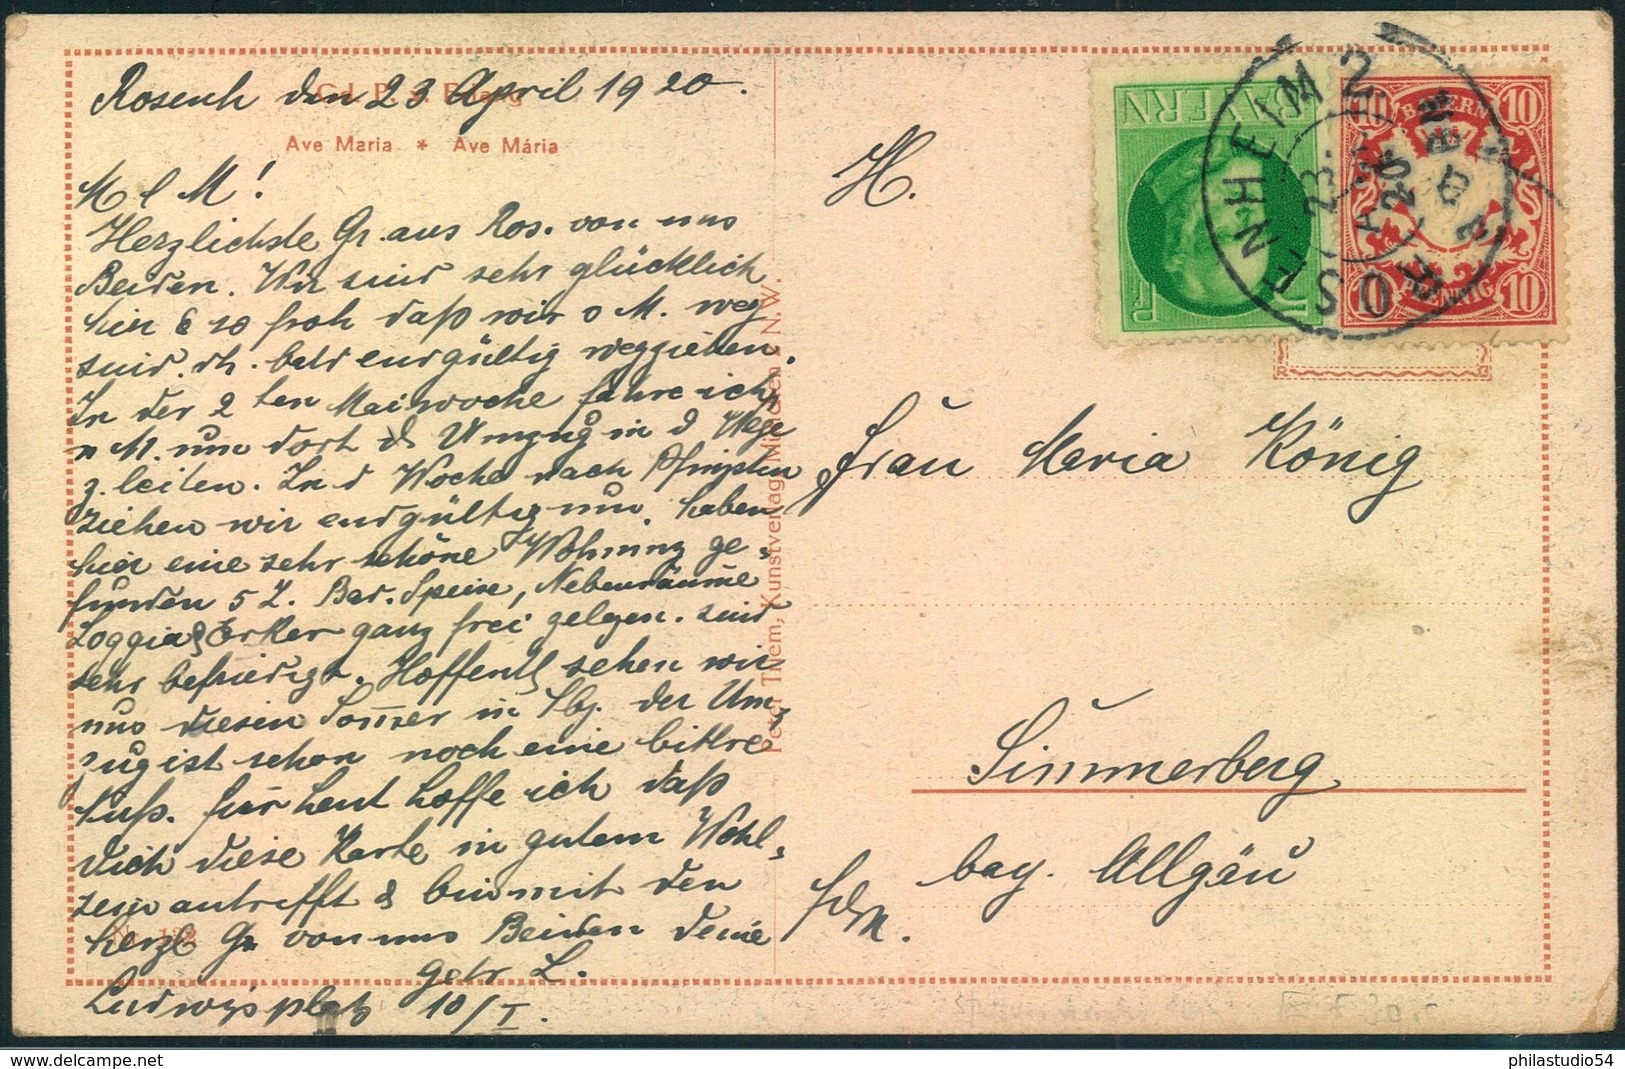 Rosenh den 23 April 1920.
Ave Maria * Ave Mária
M l M!
Herzlichste Gr. aus Ros. von uns
Beiden. Wir sind sehr glücklich
hier & so froh daß wir v M. weg
sind. dh. bald endgültig wegziehen.
In der 2 ten Maiwoche fahre ich
n M. um dort d Umzug in d Wege
z. leiten. In d Woche nach Pfingsten
ziehen wir endgültig um. haben
hier eine sehr schöne Wohnung ge=
funden 5 Z. Bad. Speise, Nebenräume
Loggia & Erker ganz frei gelegen. sind
sehr befriedigt. Hoffentl sehen wir
uns diesen Sommer in Sbg. der Um=
zug ist schon noch eine bittre
Nuß. für heut hoffe ich daß
Dich diese Karte in gutem Wohl=
sein antrifft & bin mit den
herzl Gr von uns Beiden Deine
getr L.
Ludwigsplatz 10/I.
Peter Them, Kunstverlag München N.W.
BAYERN
BAYERN
10
10
PFENNIG
10
10
ROSENHEIM 2
23
20
H.
Frau Maria König
Simmerberg
bay. Allgäu